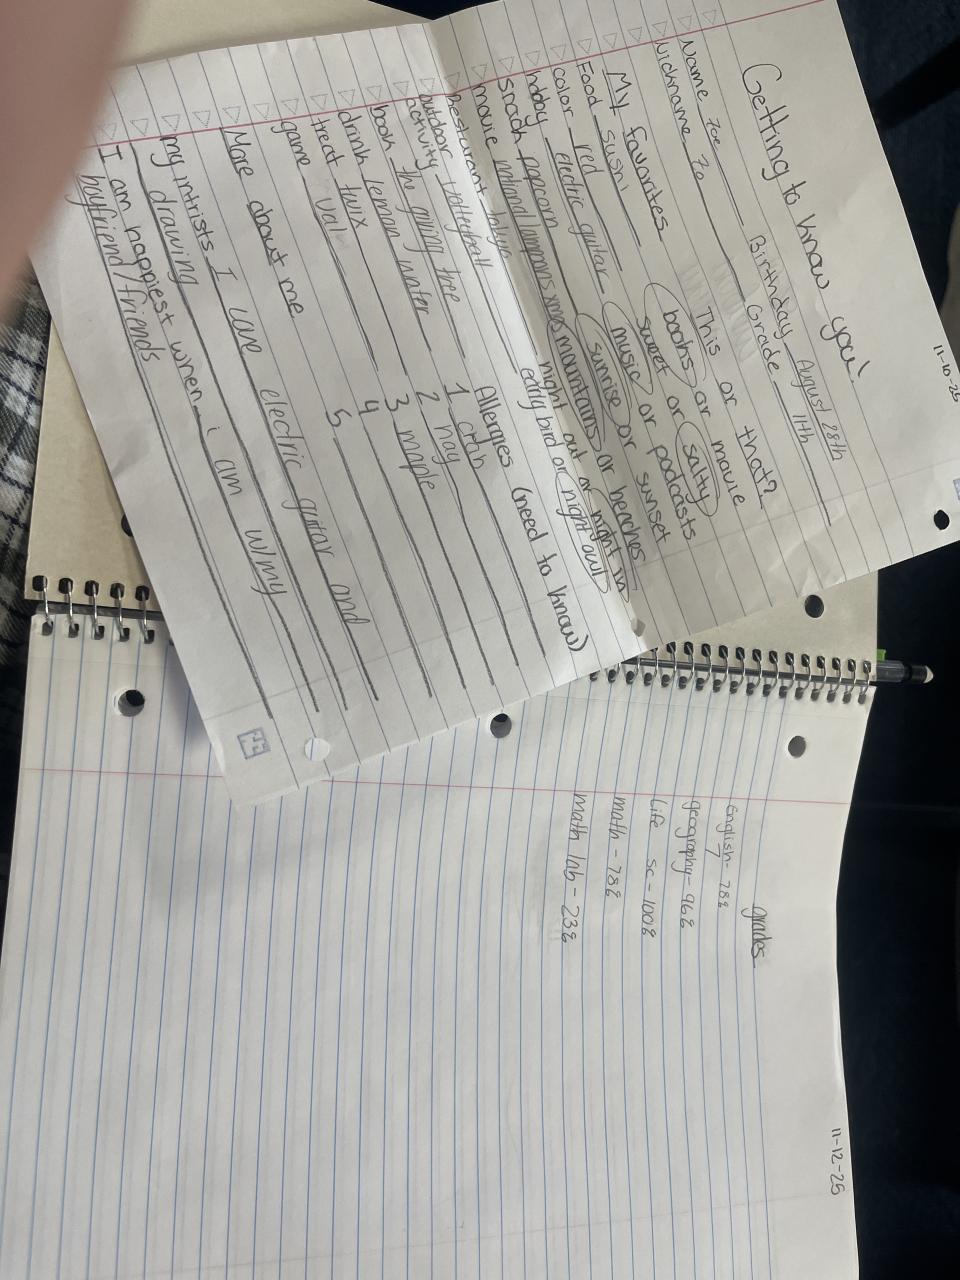 11-10-25
Getting to know you!
Name Zoe Birthday August 28th
Nickname Zo Grade 11th
My favorites
Food sushi
color red
hobby electric guitar
snack popcorn
movie national lampoons xmas
Resturant tokyo
outdoor activity volleyball
book the giving tree
drink lemon water
treat twix
game val
This or that?
books or movie
sweet or salty
music or podcasts
sunrise or sunset
mountains or beaches
night out or night in
early bird or night owl
Allergies (need to know)
1 crab
2 hay
3 maple
4
5
More about me
my intrists I love electric guitar and
drawing
I am happiest when i am w/my
boyfriend/friends
11-12-25
grades
english- 78%
geography- 96%
Life sc - 100%
math - 78%
math lab - 23%